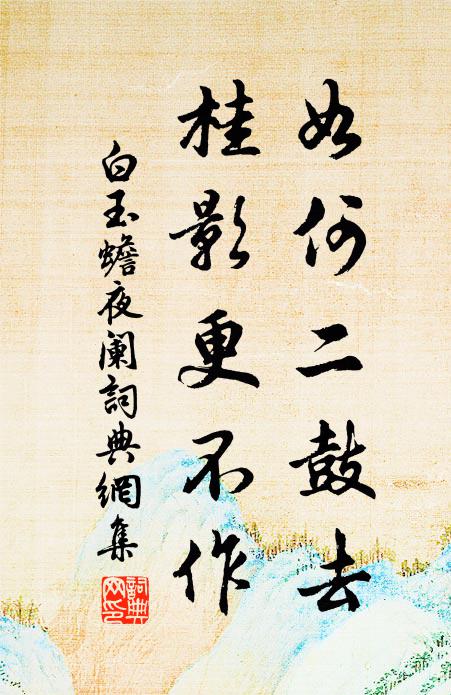 如何二鼓去
桂影更不作
白玉蟾夜阑詞典網集
詞典